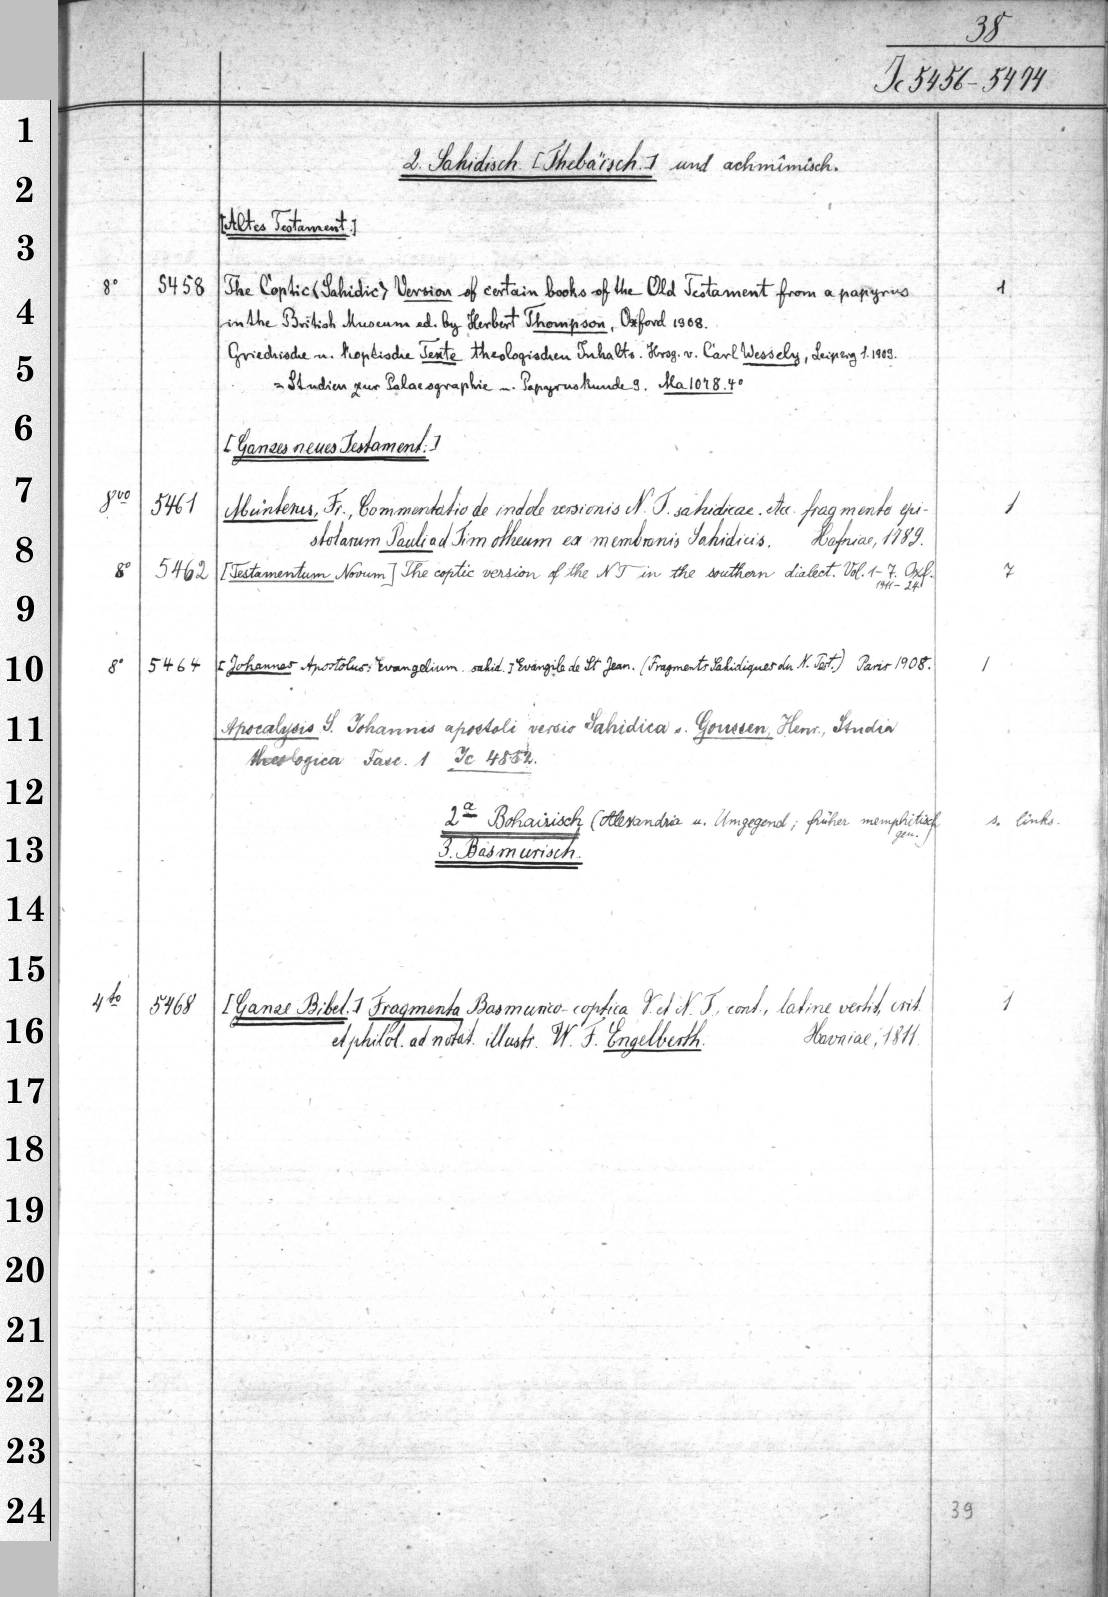 38
Jc 5456-5474
1
2. Sahidisch. [Thebäisch.] und achmîmisch.
2
[Altes Testament.]
3
8° 5458 The Coptic (Sahidic) Version of certain books of the Old Testament from a papyrus 1
4
in the British Museum ed. by Herbert Thompson, Oxford 1908.
Griechische u. koptische Texte theologischen Inhalts. Hrsg. v. Carl Wessely, Leipzig 1. 1909.
5
= Studien zur Palaeographie u. Papyruskunde 9. Ma 1078. 4°
6
[Ganzes neues Testament.]
7
8vo 5461 Münterus, Fr., Commentatio de indole versionis N. T. sahidicae. Acc. fragmenta epi- 1
8
stolarum Pauli ad Timotheum ex membranis Sahidicis. Hafniae, 1789.
8° 5462 [Testamentum Novum] The coptic version of the NT in the southern dialect. Vol. 1-7. Oxf. 7
1911-24
9
10
8° 5464 [Johannes Apostolus: Evangelium sahid.] Evangile de St Jean. (Fragments Sahidiques du N. Test.) Paris 1908. 1
11
Apocalypsis S. Johannis apostoli versio Sahidica s. Goussen, Henr., Studia
theologica Fasc. 1 Jc 4852.
12
2a Bohairisch (Alexandria u. Umgegend; früher memphitisch gen.) s. links.
13
3. Basmurisch.
14
15
4to 5468 [Ganze Bibel.] Fragmenta Basmurico-coptica V. et N. T., cont., latine vertit, crit. 1
16
et philol. adnotat. illustr. W. F. Engelberth. Havniae, 1811.
17
18
19
20
21
22
23
24
39